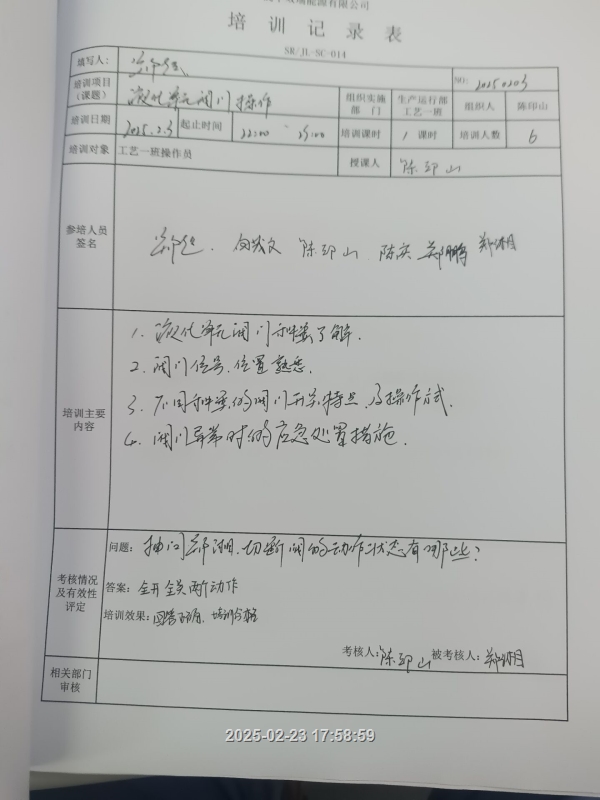 能源有限公司
培训记录表
SR/JL-SC-014
填写人：
NO: 20250203
培训项目（课题） 液化单元阀门操作 组织实施部门 生产运行部工艺一班 组织人 陈印山
培训日期 2025.2.3 起止时间 22:00 - 23:00 培训课时 1 课时 培训人数 6
培训对象 工艺一班操作员 授课人 陈印山
参培人员签名 陈印山 陈庆 郑鹏 郑湘
培训主要内容
1. 液化单元阀门种类了解.
2. 阀门位号、位置熟悉.
3. 不同种类的阀门开关特点及操作方式.
4. 阀门异常时的应急处置措施.
考核情况及有效性评定
问题：抽问郑湘,切断阀的动作状态有哪些?
答案：全开全关两个动作
培训效果：回答正确、培训合格
考核人：陈印山 被考核人：郑湘
相关部门审核
2025-02-23 17:58:59